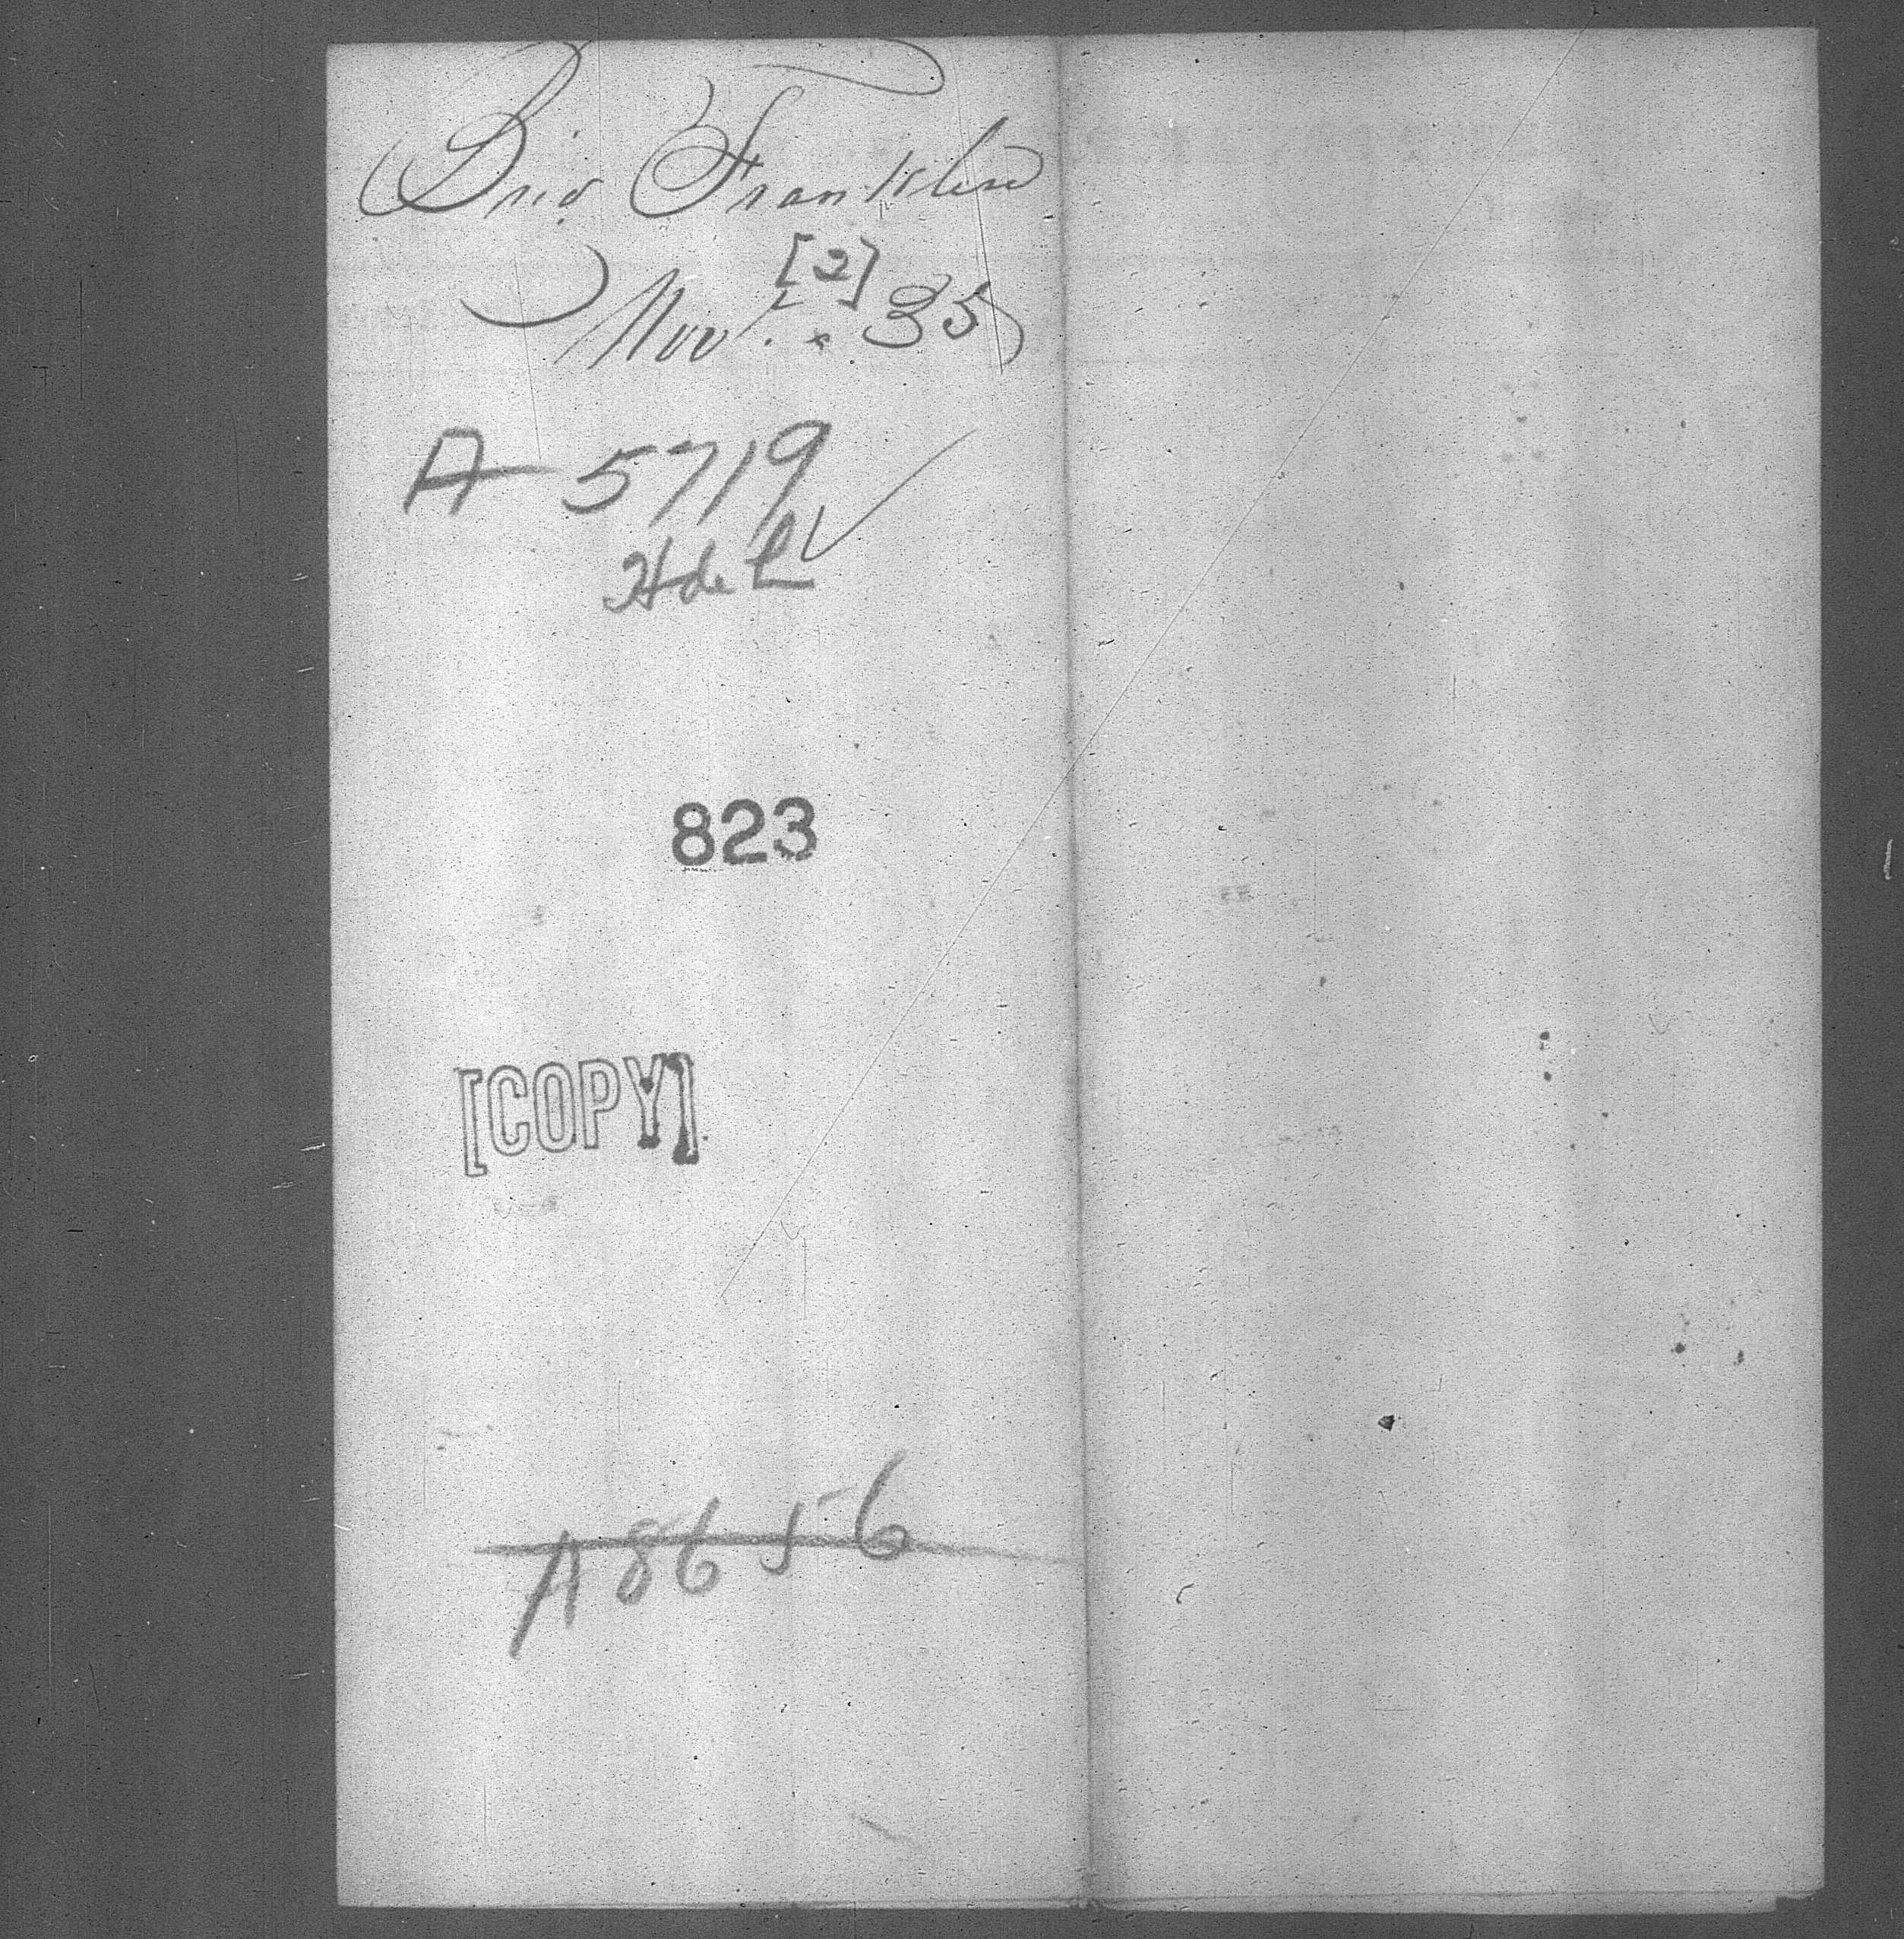 Brig Franklin
[2]
Nov. 35
A 5719
H de L
823
[COPY]
A 8656